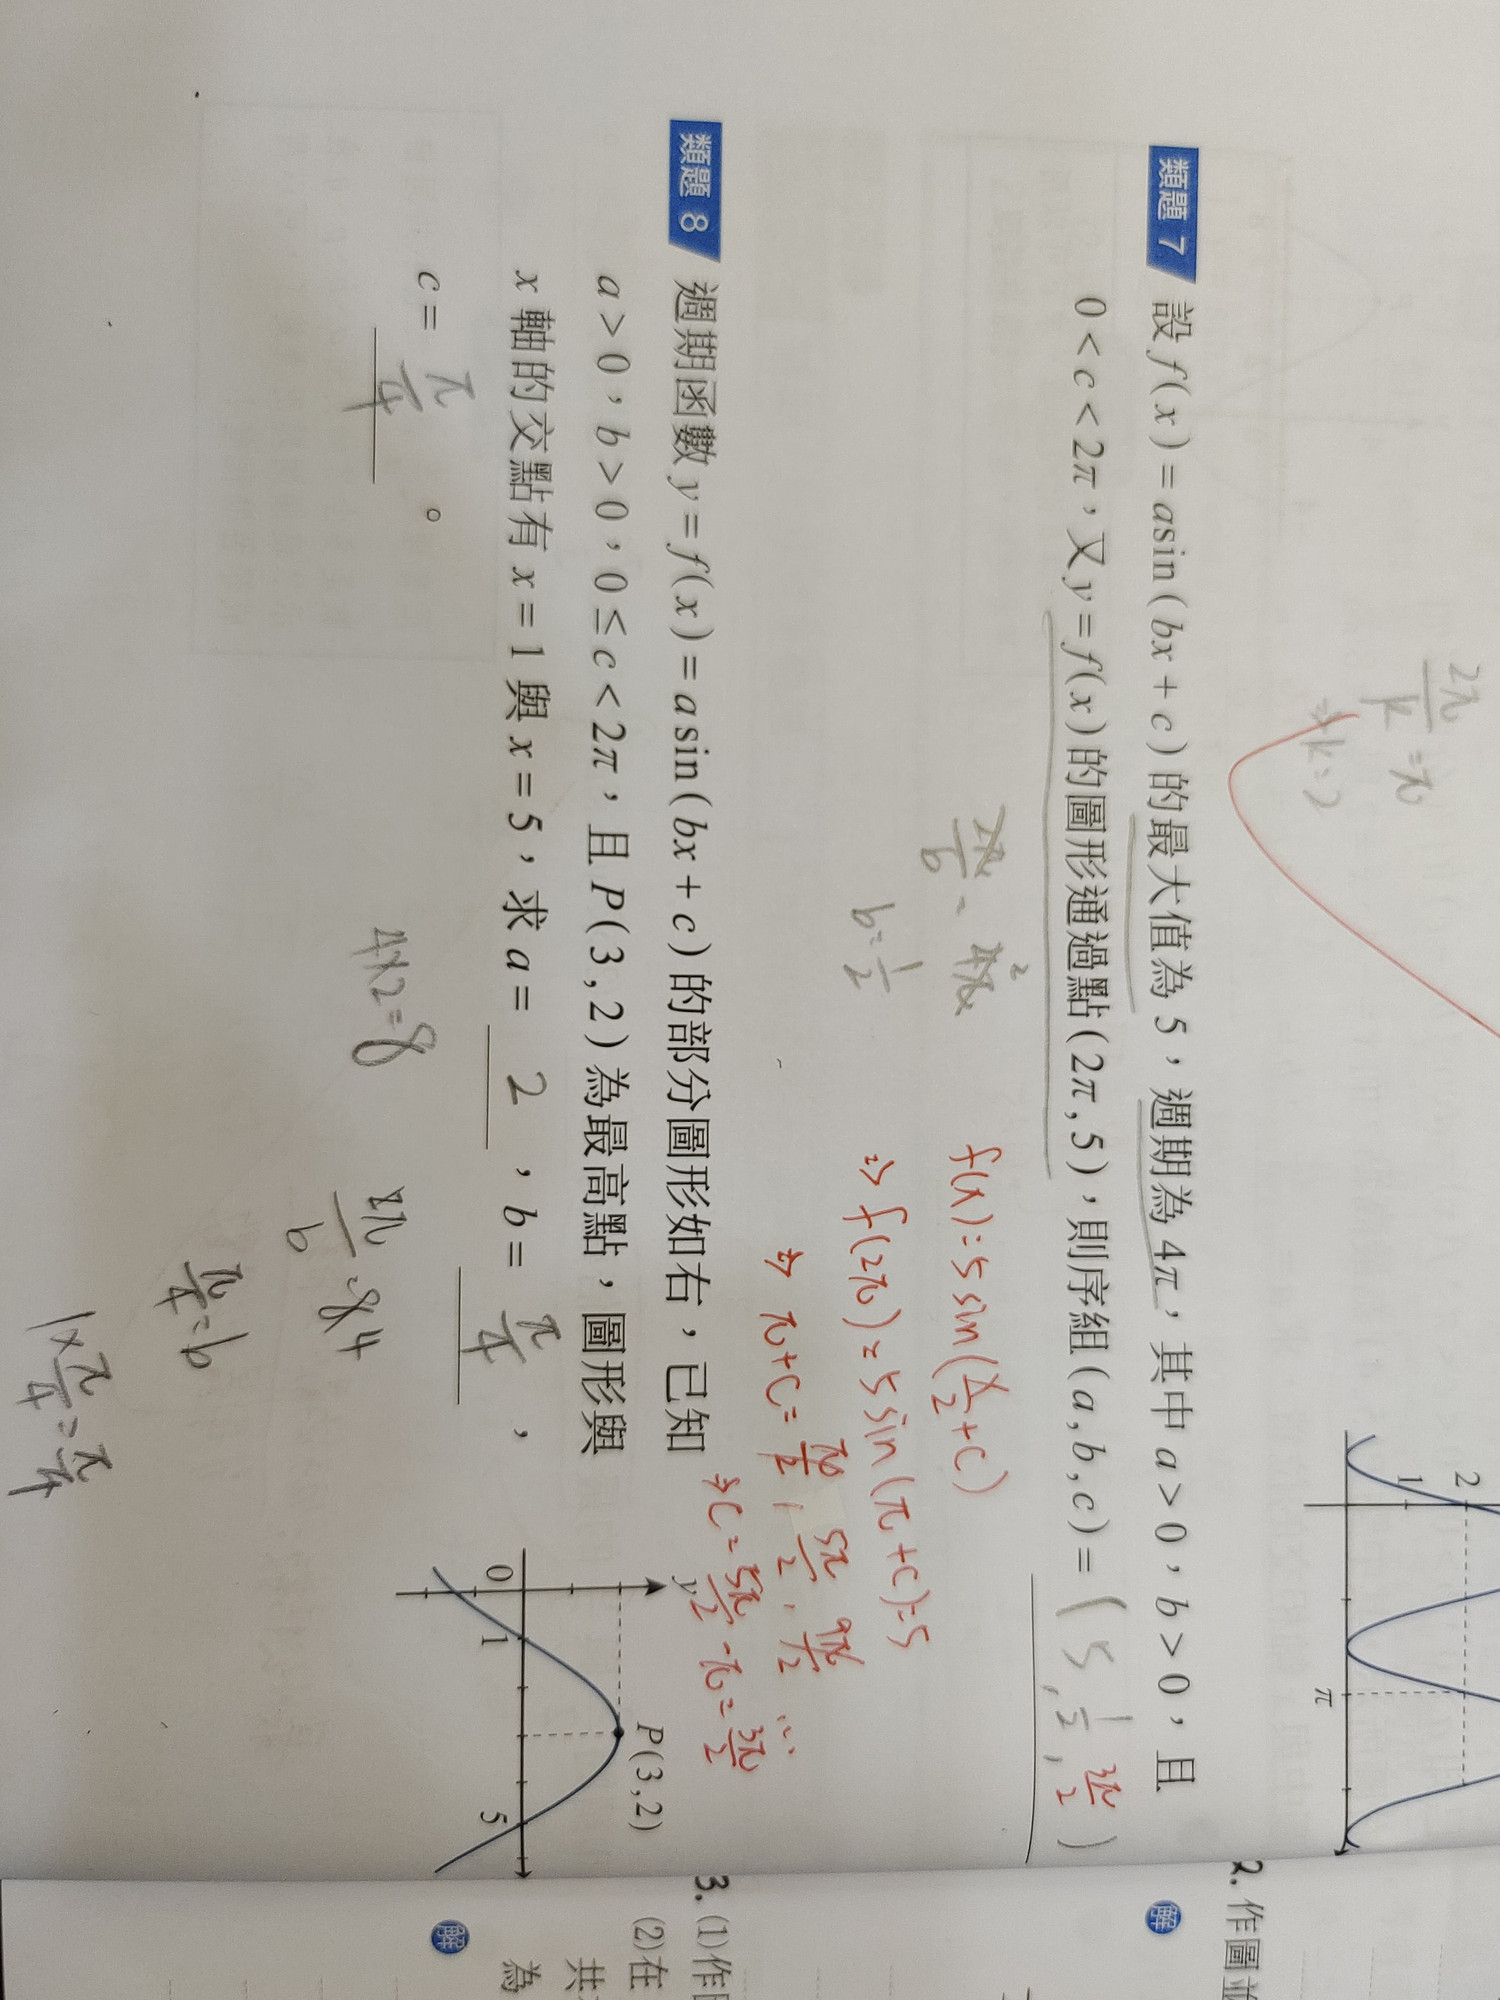 2π/k = π
⇒ k = 2
2
1
π
類題 7
設 f(x) = a sin(bx + c) 的最大值為 5，週期為 4π，其中 a > 0，b > 0，且
0 < c < 2π，又 y = f(x) 的圖形通過點 (2π, 5)，則序組 (a, b, c) = (5, 1/2, 3π/2)
2π/b = 4π 2
b = 1/2
f(x) = 5 sin(x/2 + c)
⇒ f(2π) = 5 sin(π + c) = 5
⇒ π + c = π/2, 5π/2, 9π/2 ...
⇒ c = 5π/2 - π = 3π/2
類題 8
週期函數 y = f(x) = a sin(bx + c) 的部分圖形如右，已知
a > 0，b > 0，0 ≤ c < 2π，且 P(3, 2) 為最高點，圖形與
x 軸的交點有 x = 1 與 x = 5，求 a = 2，b = π/4，
c = π/4。
y
P(3, 2)
0
1
5
4×2=8
2π/b = 8 4
π/4 = b
1×π/4 = π/4
2. 作圖並
解
3. (1)作
(2)在
共
為
解